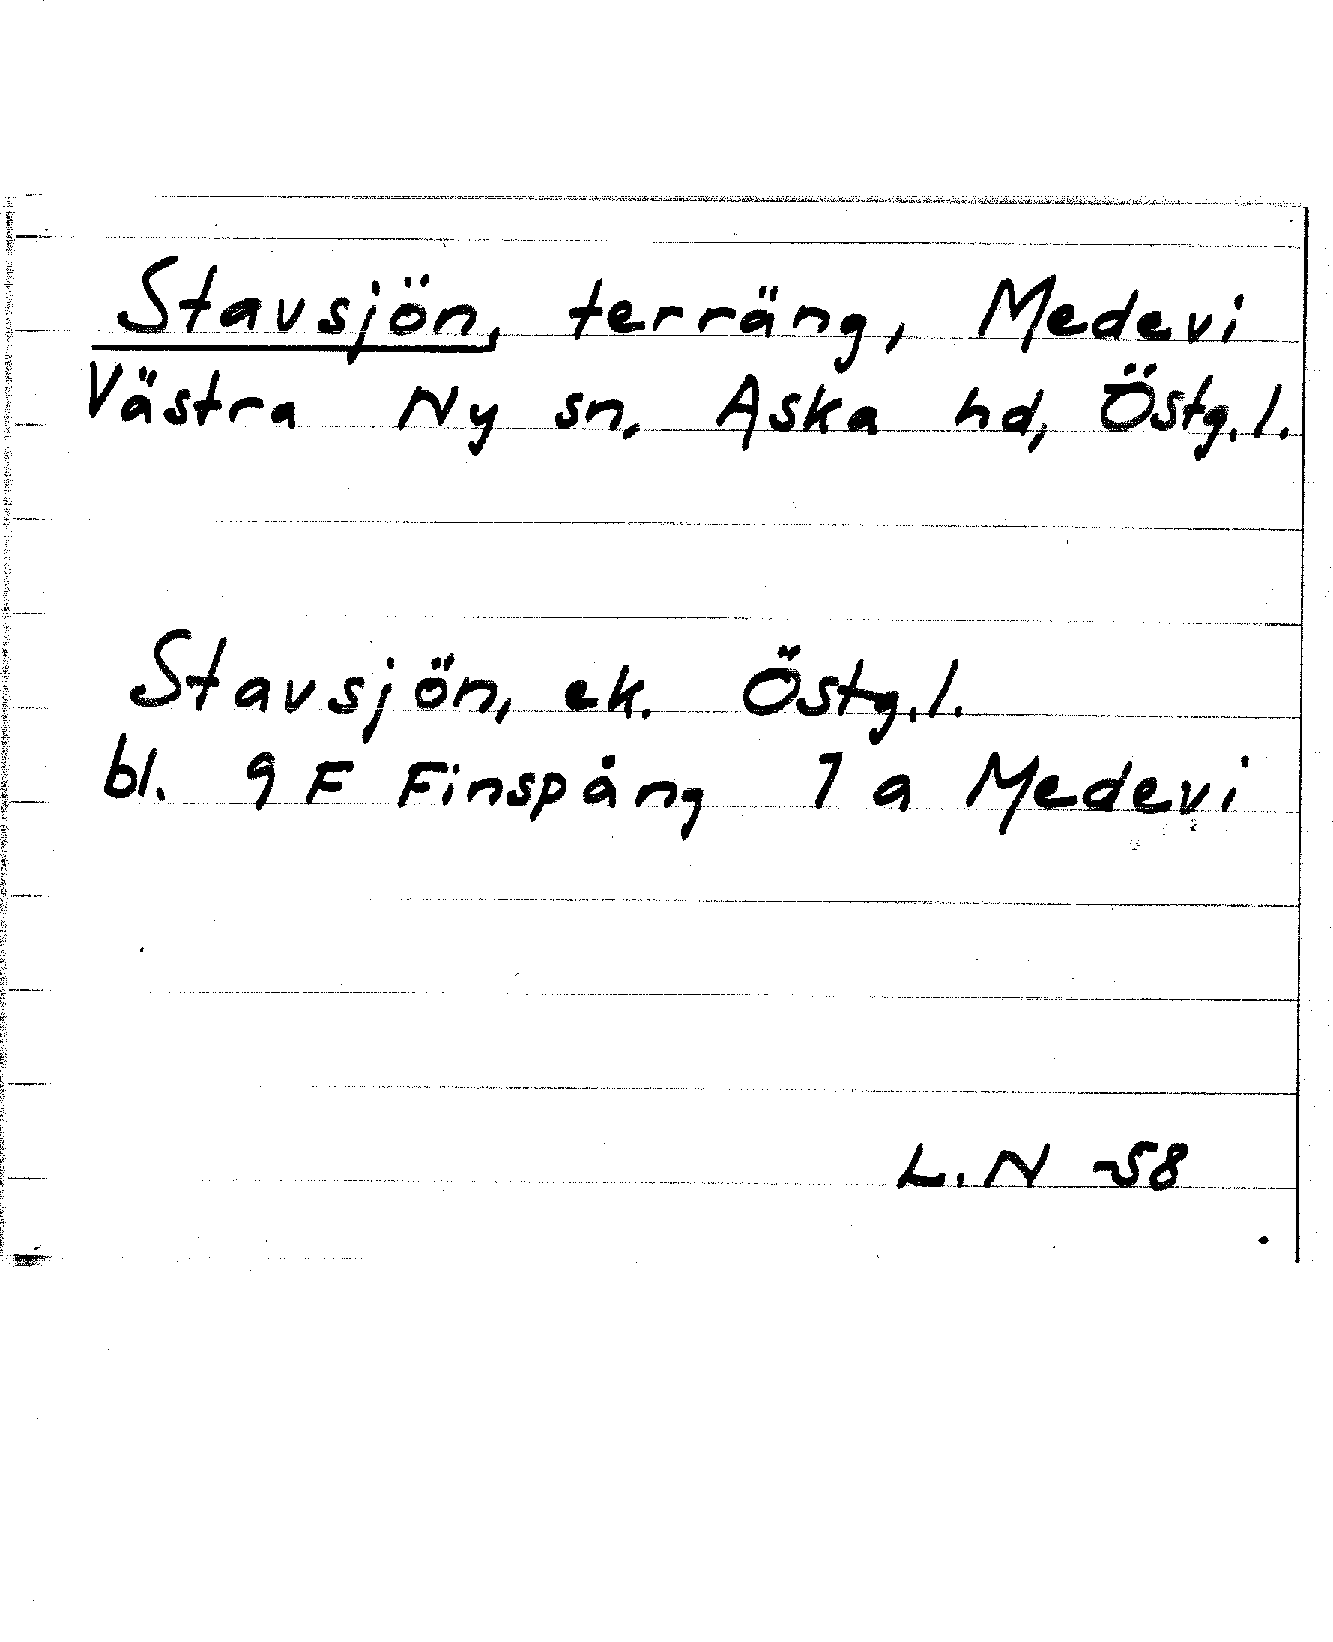 Stavsjön, terräng, Medevi
Västra Ny sn, Aska hd, Östg. l.
Stavsjön, ek. Östg. l.
bl. 9 F Finspång 7 a Medevi
L. N -58